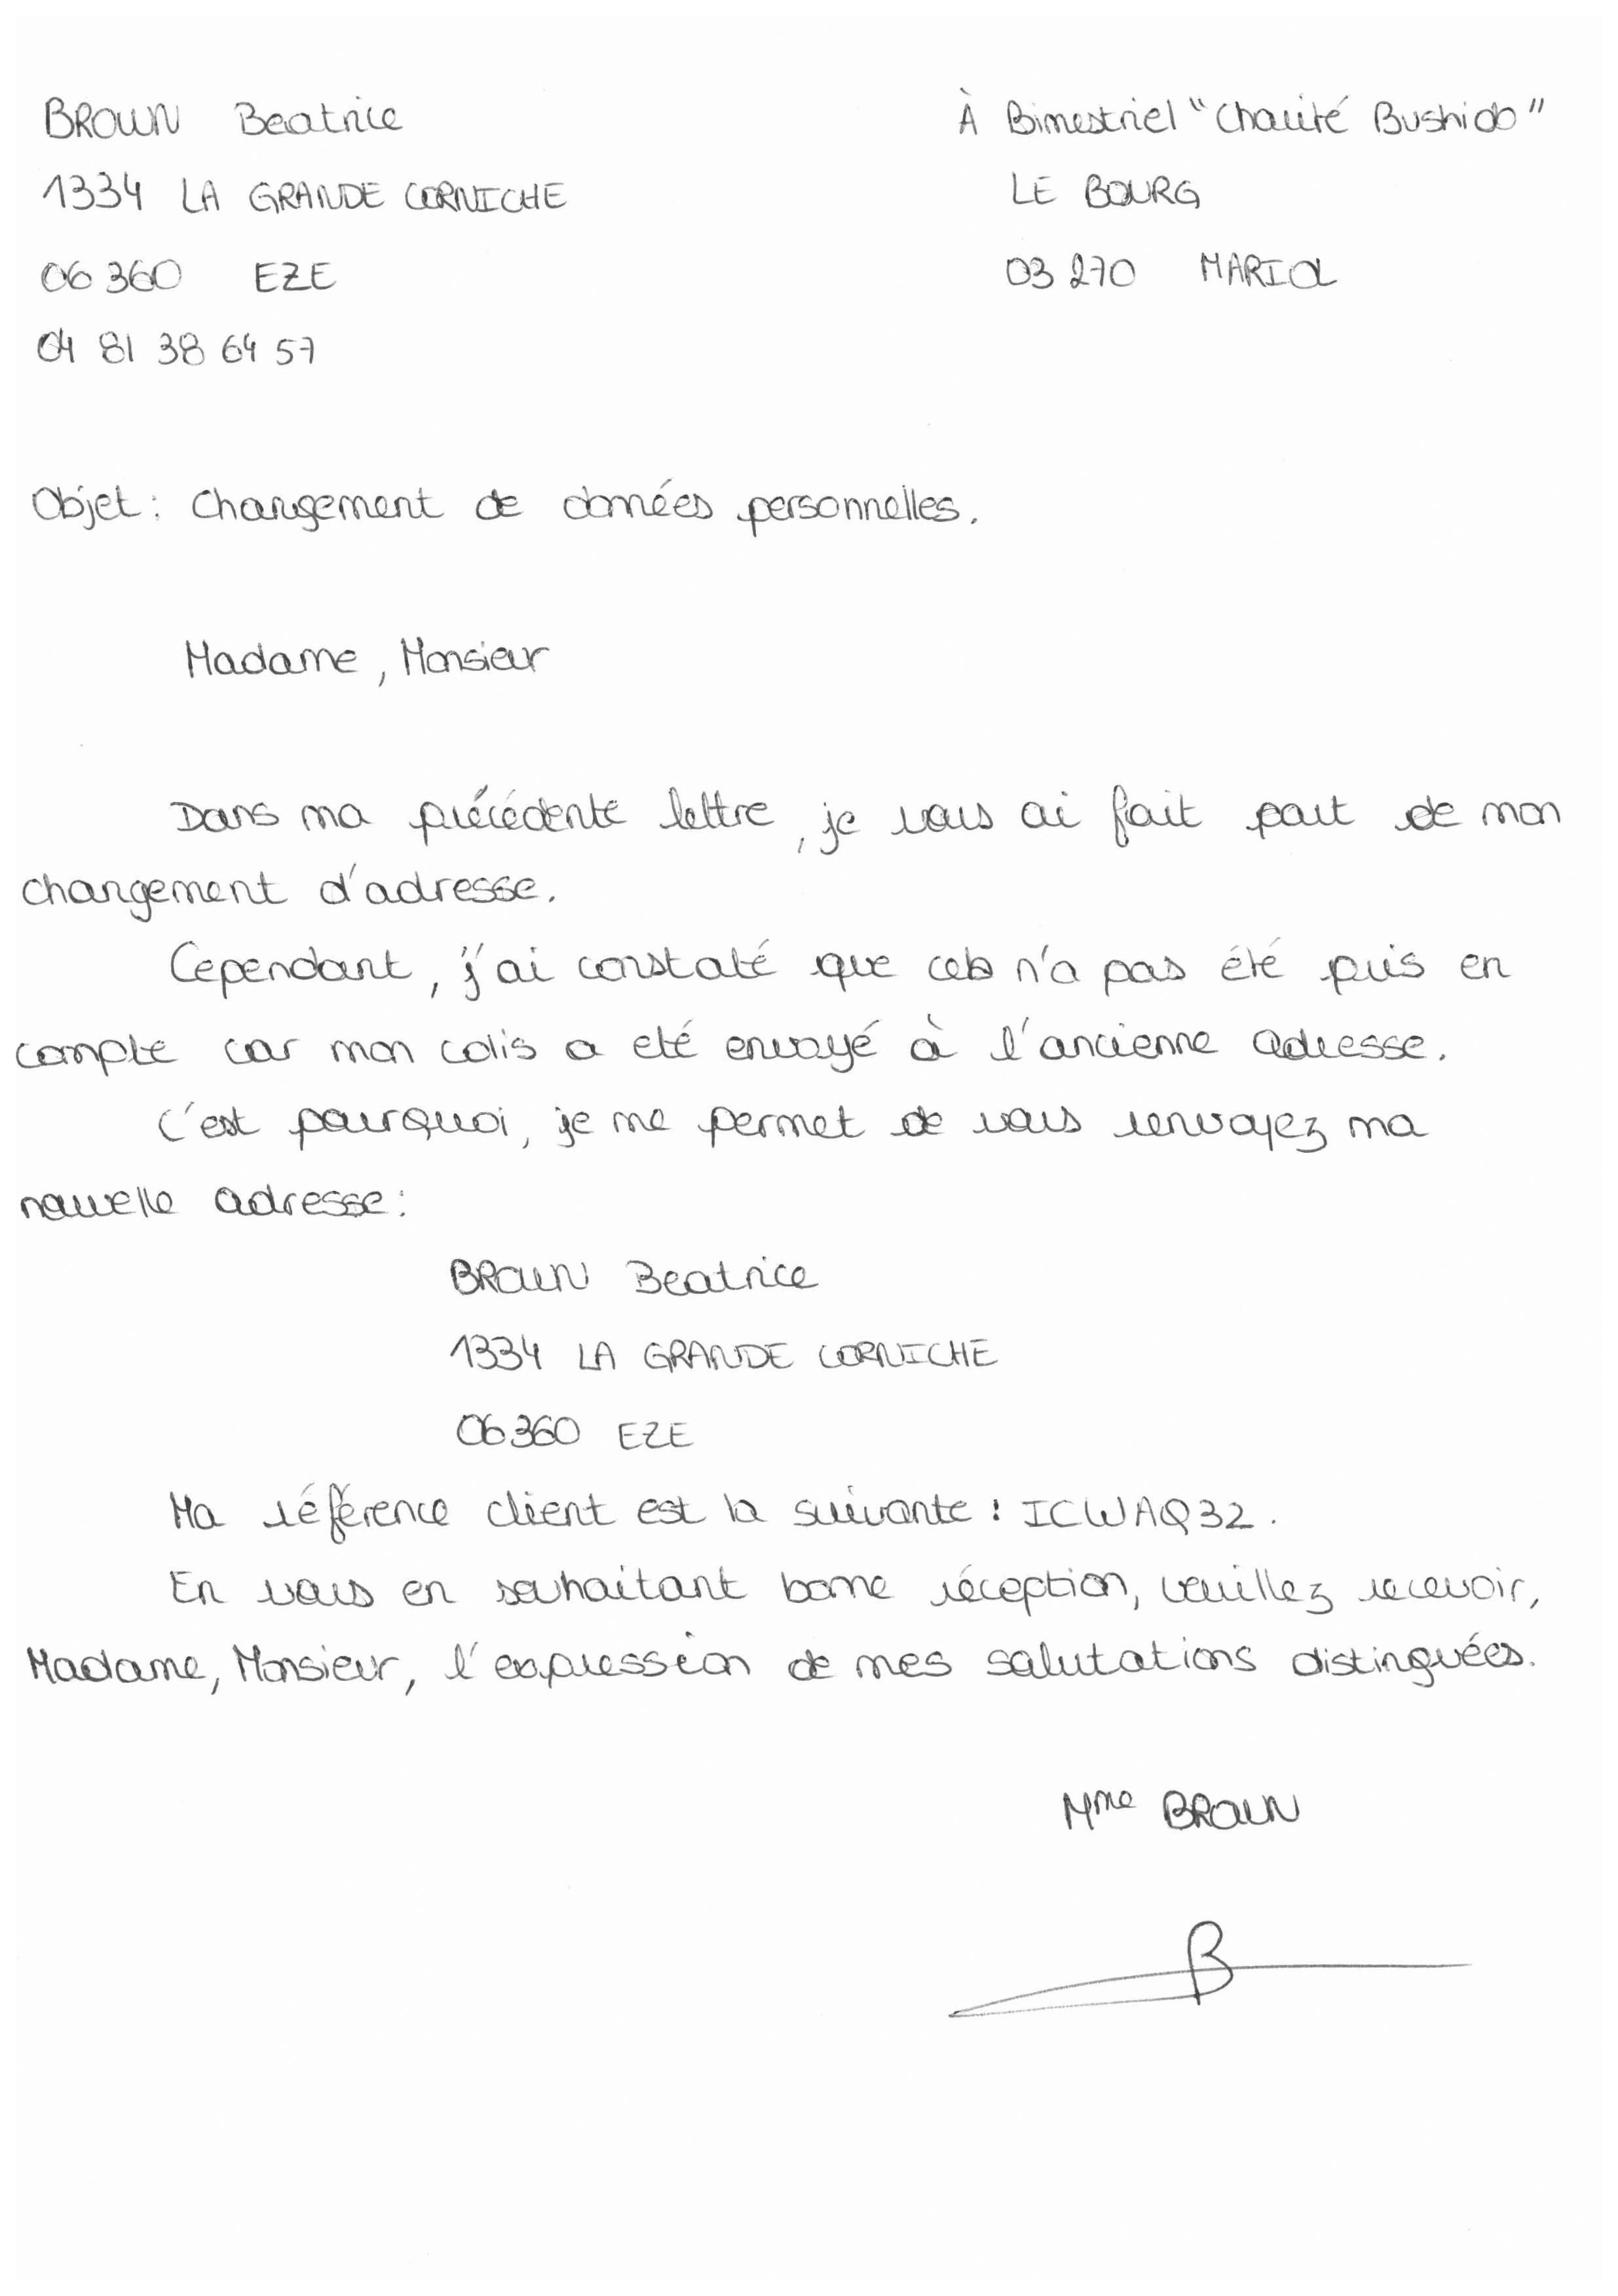 BROWN Beatrice
1334 LA GRANDE CORNICHE
06 360 EZE
04 81 38 64 57
À Bimestriel "Charité Bushido"
LE BOURG
03 270 MARIOL
Objet : Changement de données personnelles.
Madame, Monsieur
Dans ma précédente lettre, je vous ai fait part de mon
changement d'adresse.
Cependant, j'ai constaté que cela n'a pas été pris en
compte car mon colis a eté envoyé à l'ancienne adresse.
C'est pourquoi, je me permet de vous renvoyez ma
nouvelle adresse :
BROWN Beatrice
1334 LA GRANDE CORNICHE
06360 EZE
Ma référence client est la suivante : ICWAQ32.
En vous en souhaitant bonne réception, veuillez recevoir,
Madame, Monsieur, l'expression de mes salutations distinguées.
Mme BROWN
B